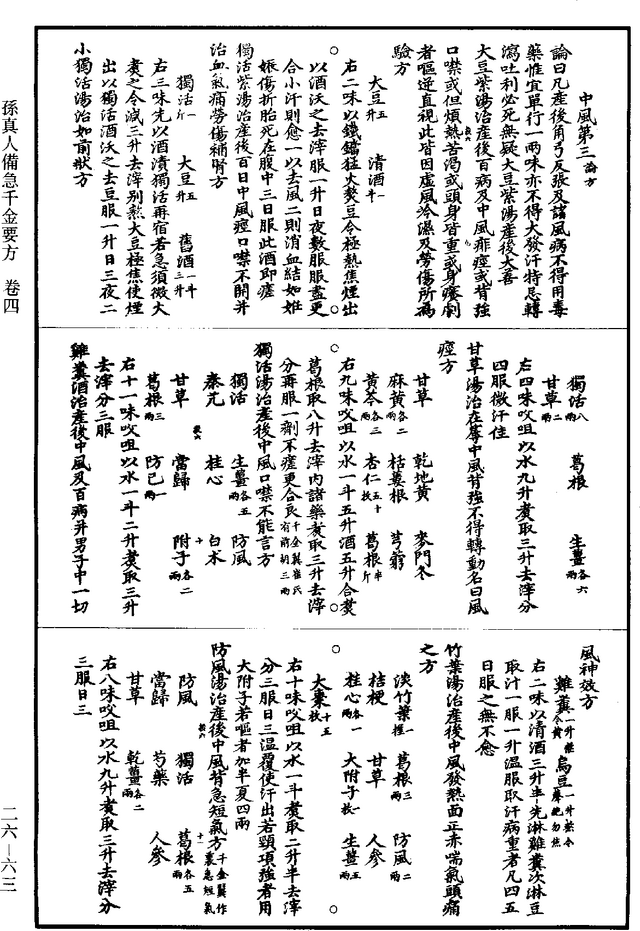 中風第三 論方
論曰凡產後角弓反張及諸風病不得用毒
藥惟宜單行一兩味亦不得大發汗特忌轉
瀉吐利必死無疑大豆紫湯產後大善
大豆紫湯治產後百病及中風痱痙或背強
口噤或但煩熱苦渴或頭身皆重或身癢劇
者嘔逆直視此皆因虛風冷濕及勞傷所為
驗方
大豆五升 清酒一斗
右二味以鐵鐺猛火熬豆令極熱焦煙出
以酒沃之去滓服一升日夜數服服盡更
合小汗則愈一以去風二則消血結如妊
娠傷折胎死在腹中三日服此酒即瘥
獨活紫湯治產後百日中風痙口噤不開并
治血氣痛勞傷補腎方
獨活一斤 大豆五升 舊酒一斗三升
右三味先以酒漬獨活再宿若急須微火
煑之令減三升去滓別熬大豆極焦使煙
出以獨活酒沃之去豆服一升日三夜二
小獨活湯治如前狀方
獨活八兩 葛根 生薑各六兩
甘草二兩
右四味㕮咀以水九升煑取三升去滓分
四服微汗佳
甘草湯治在蓐中風背強不得轉動名曰風
痙方
甘草 乾地黃 麥門冬
麻黃各二兩 栝蔞根 芎藭
黃芩各三兩 杏仁五十枚 葛根半斤
右九味㕮咀以水一斗五升酒五升合煑
葛根取八升去滓內諸藥煑取三升去滓
分再服一劑不瘥更合良 千金翼崔氏有前胡三兩
獨活湯治產後中風口噤不能言方
獨活 生薑各五兩 防風
秦艽 桂心 白朮
甘草 當歸 附子各二兩
葛根三兩 防已一兩
右十一味㕮咀以水一斗二升煑取三升
去滓分三服
雞糞酒治產後中風及百病并男子中一切
風神效方
雞糞一升熬令黃 烏豆一升熬令聲絕勿焦
右二味以清酒三升半先淋雞糞次淋豆
取汁一服一升溫服取汗病重者凡四五
日服之無不愈
竹葉湯治產後中風發熱面正赤喘氣頭痛
之方
淡竹葉一握 葛根三兩 防風二兩
桔梗 甘草 人參
桂心各一兩 大附子一枚 生薑五兩
大棗十五枚
右十味㕮咀以水一斗煑取二升半去滓
分三服日三溫覆使汗出若頸項強者用
大附子若嘔者加半夏四兩
防風湯治產後中風背急短氣方 千金翼作裏急短氣
防風 獨活 葛根各五兩
當歸 芍藥 人參
甘草 乾薑各二兩
右八味㕮咀以水九升煑取三升去滓分
三服日三
孫真人備急千金要方 卷四
二六—六三